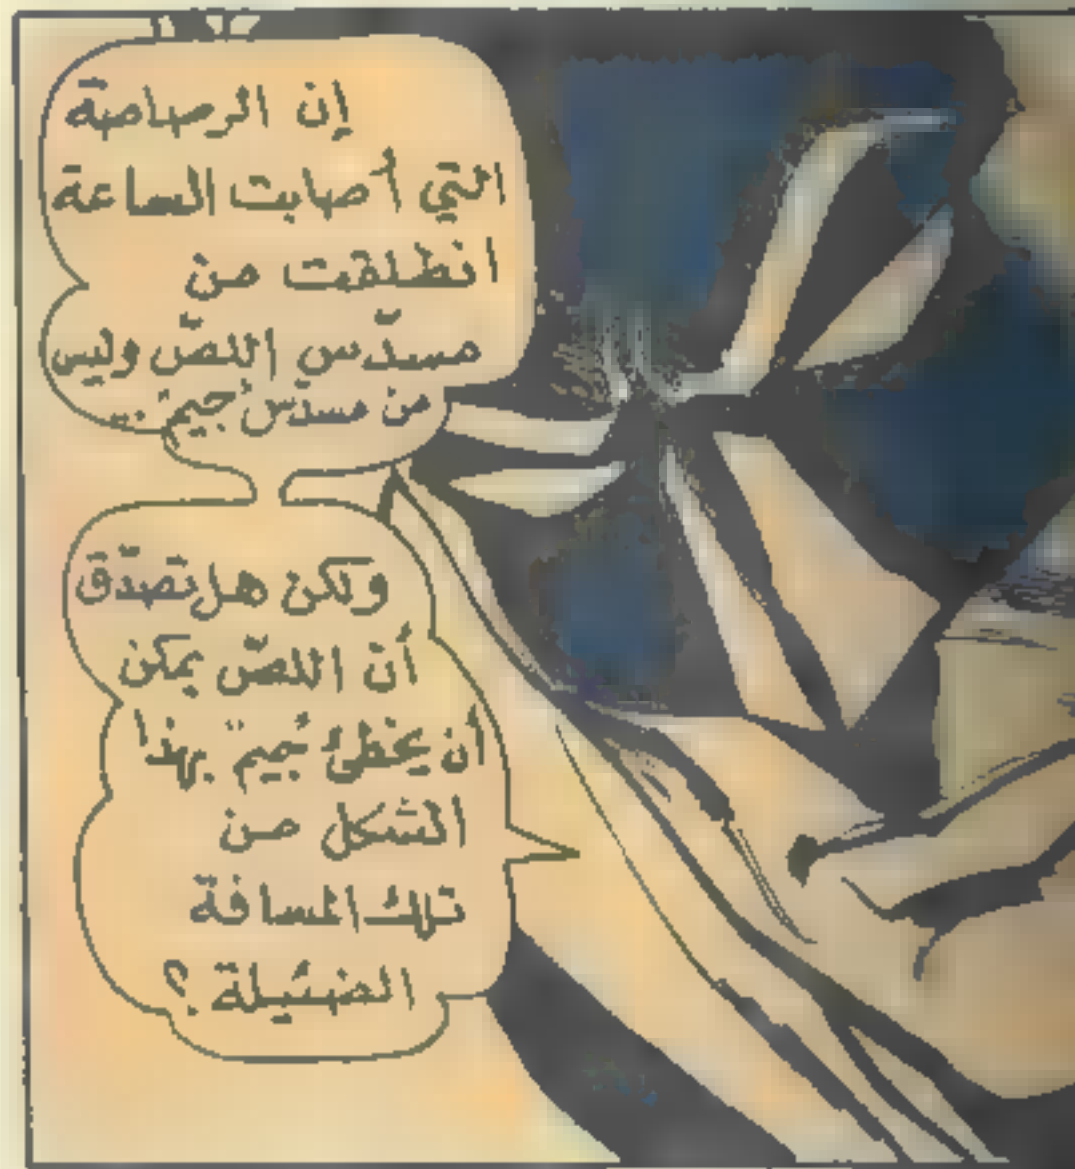 إن الرصاصة
التي أصابت الساعة
انطلقت من
مسدّس اللصّ وليس
من مسدّس "جيم" ..
ولكن هل تصدّق
أنّ اللصّ يمكن
أن يخطئ "جيم" بهذا
الشكل من
تلك المسافة
الضئيلة ؟